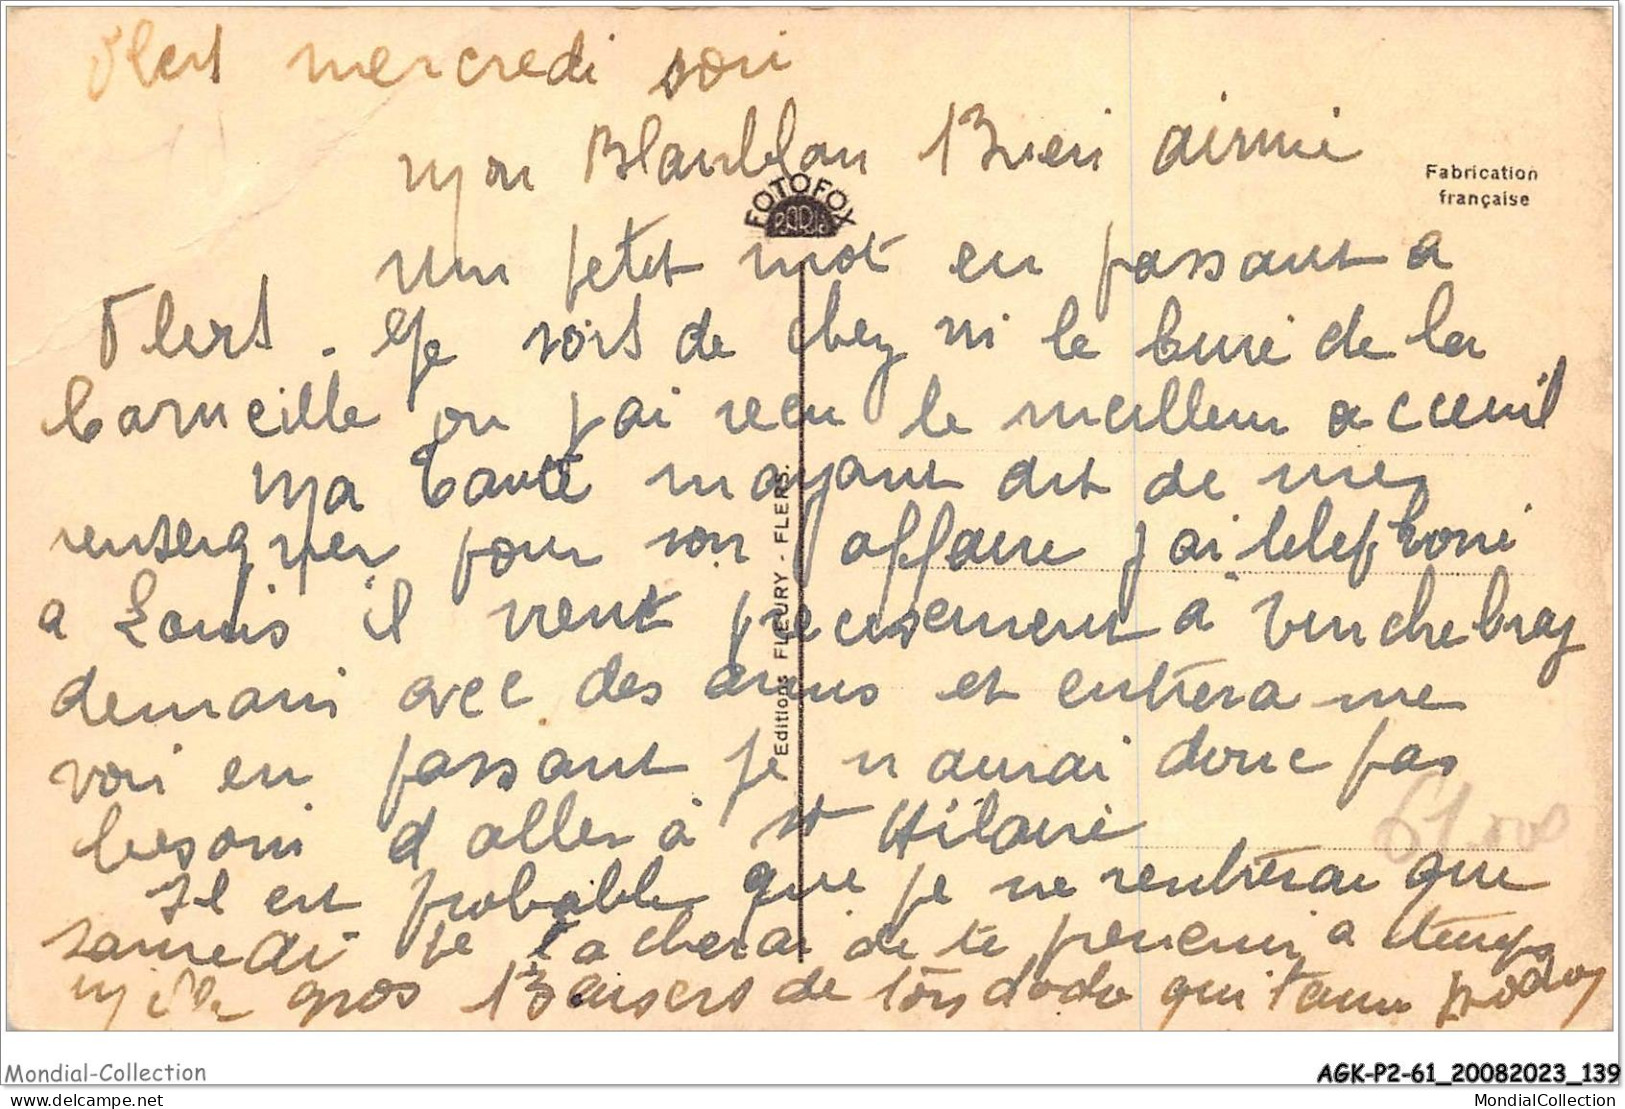 Flers mercredi soir
Mon Blanblan Bien aimé
Fabrication
française
FOTOFOX
PARIS
Un petit mot en passant a
Flers. Je sors de chez mr le Curé de la
Carneille ou j'ai recu le meilleur acceuil
Ma tante m'ayant dit de me
renseigner pour son affaire j'ai telephoné
a Louis il vient precisement à Tinchebray
demain avec des amis et entrera me
voir en passant je n'aurai donc pas
besoin d'aller à St Hilaire
Il est probable que je ne rentrerai que
samedi je tacherai de te prevenir a temps
Mille gros Baisers de ton dodo qui t'aime
Editions FLEURY - FLERS.
Mondial-Collection
AGK-P2-61_20082023_139
delcampe.net
MondialCollection